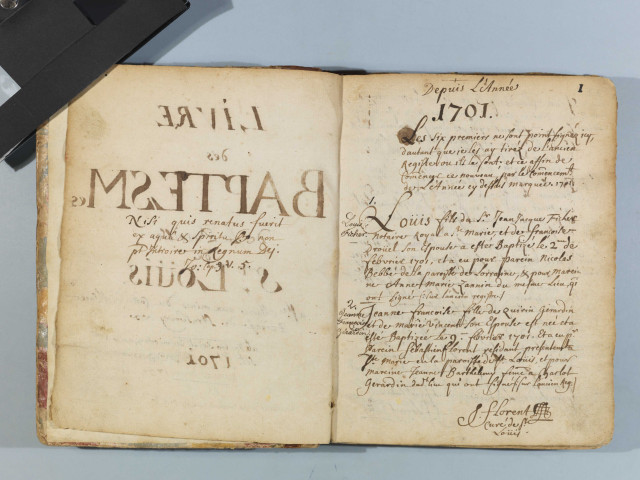 LIVRE
des
BAPTESMes
Nisi quis renatus fuerit
ex aqua & Spiritu Sto non
pt introire in Regnum Dei.
Jo: 3. V. 5.
St LOUIS
1701
Depuis L'Année
1
1701.
Les six premiers ne sont point signez icy,
dautant que je les ay tirez de l'ancien
Registre ou ils le sont, et ce affin de
ce nouveau, par le commencemt
de l'année cy dessus marquée 1701
1.
Louis
Fischer
Louis fils du Sr Jean Jacque Fischer
notaire Royal a Ste Marie, et de françoise
son Espouse a esté Baptizé le 2me de
febvrier 1701. et a eu pour parein Nicolas
de la paroisse de Lorraine, & pour Marein
ne Anne Marie du mesme Lieu, qui
ont signé
2.
Jeanne
françoise
Gerardin
Jeanne françoise fille de Quirin Gerardin
et de Marie Vincent son Espouse est née et a
esté Baptizée le 9. febvrier 1701. et a eu pr
Parein Sebastien florent residant
Ste Marie en la paroisse de St Louis, et pour
Mareine Jeanne Barthelemy feme a Charlot
Gerardin dud lieu qui ont signé sur l'ancien Reg)
J. florent
curé de St
Louis.